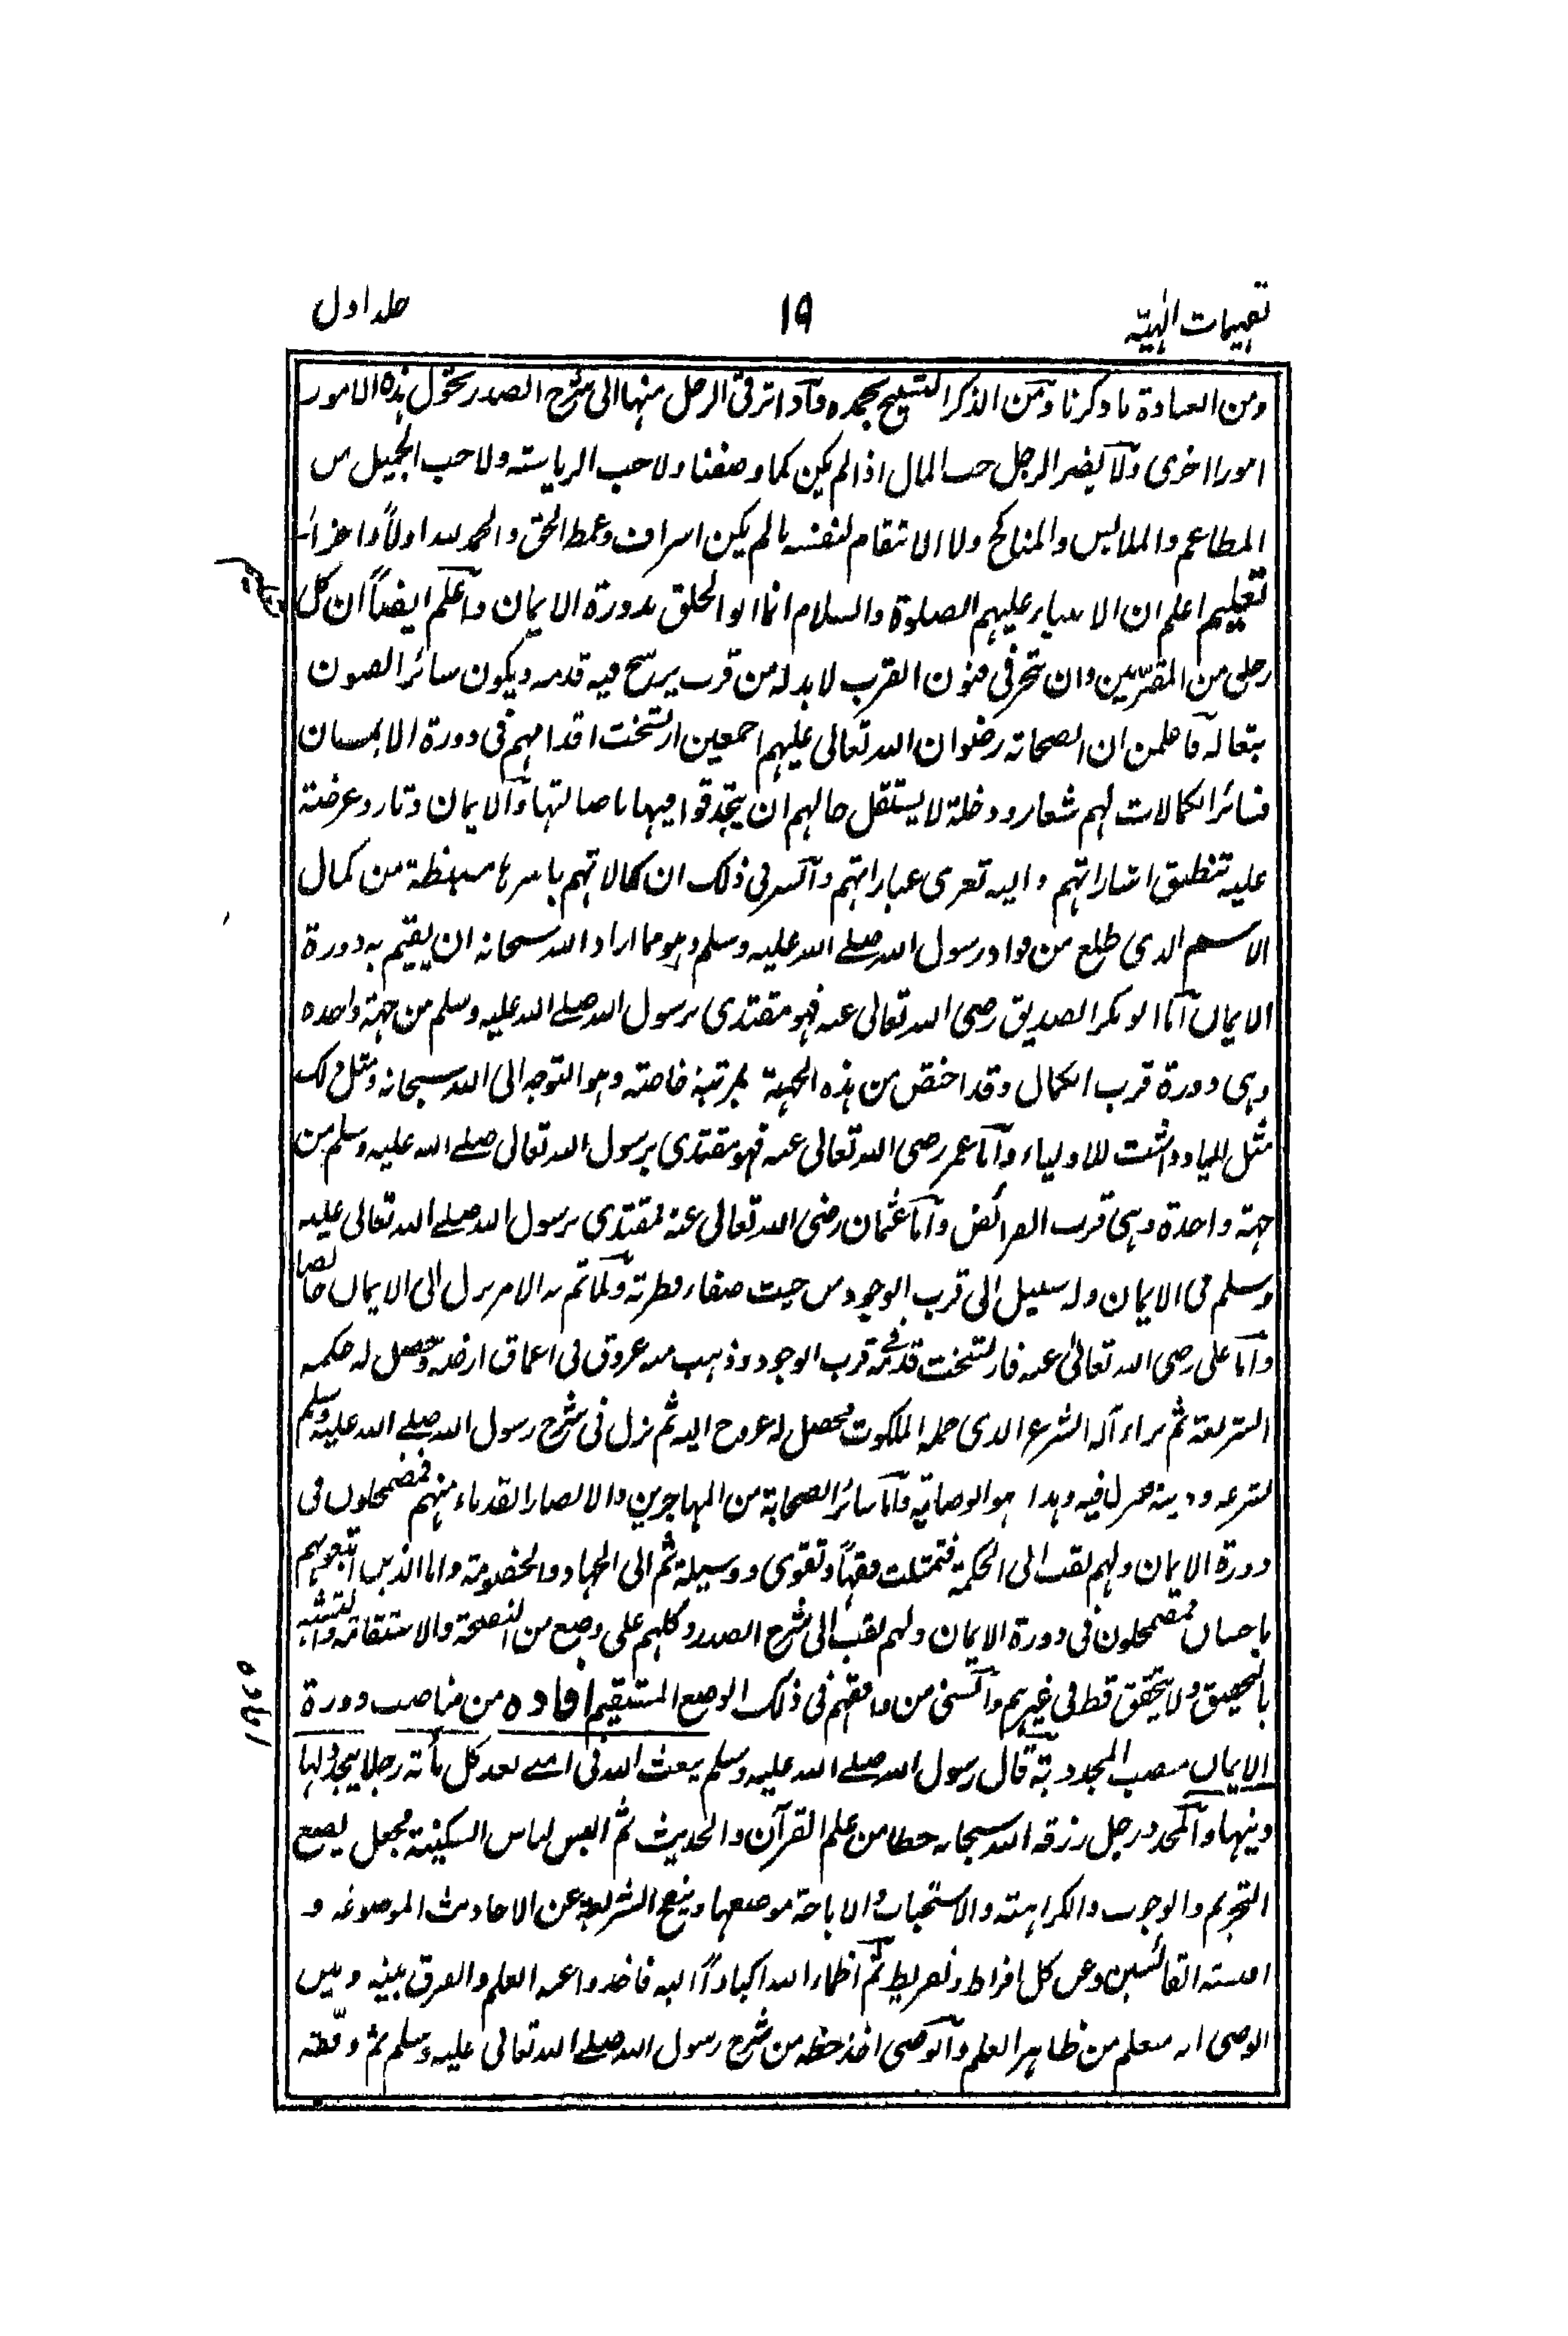 تفہیمات الٰہیّہ ۱۹ جلد اول
ومن العبادة ما ذكرنا ومن الذكر التسبيح بحمده واذا ترقى الرجل منها الى شرح الصدر تحول هذه الامور
امورا اخرى ولا يضر الرجل حب المال اذا لم يكن كما وصفنا ولا حب الرياسته ولا حب الجميل من
المطاعم والملابس والمناكح ولا الانتقام لنفسه ما لم يكن اسراف وغمط الحق والحمد لله اولاً واخراً
تعليم اعلم ان الانبياء عليهم الصلوة والسلام انما الخلق بدورة الايمان واعلم ايضاً ان كل
رجل من المقرّبين وان تبحر فى فنون القرب لا بد له من قرب يرسخ فيه قدمه ويكون سائر الصون
تبعا له فاعلمن ان الصحابة رضوان الله تعالى عليهم اجمعين ارتسخت اقدامهم فى دورة الايمان
فسائر الكمالات لهم شعار ودخلة لا يستقل حالهم ان فيها باصالتها والايمان دثار وعرضة
عليه تنطبق اشاراتهم واليه تعزى عباراتهم والسر فى ذلك ان كمالاتهم باسرها من كمال
الاسم الذى طلع من فواد رسول الله صلے الله عليه وسلم وهو مما اراد الله سبحانه ان يقيم به دورة
الايمان اما ابو بكر الصديق رضى الله تعالى عنه فهو مقتدى برسول الله صلے الله عليه وسلم من جهة واحده
وهى دورة قرب الكمال وقد اختص من هذه الجهة بمرتبة خاصته وهو التوجه الى الله سبحانه ومثل ذلك
مثل الياد داشت للاولياء واما عمر رضى الله تعالى عنه فهو مقتدى برسول الله تعالى صلے الله عليه وسلم من
جهة واحدة وهى قرب الفرائض واما عثمان رضى الله تعالى عنه فمقتدى برسول الله صلے الله تعالى عليه
وسلم فى الايمان وله سبيل الى قرب الوجود من حيث صفاء فطرته ولما تم به الامر نزل الى الايمان خالصا
واما على رضى الله تعالىٰ عنه فارتسخت قدمه فى قرب الوجود وذهب منه عروق فى اعماق ارضه وحصل له حكمه
الشريعة ثم الشرع الذى حمله الملكوت فحصل له عروج اليه ثم نزل فى شرح رسول الله صلے الله عليه وسلم
لشرعه ودينه فنزل فيه وهذا هو الوصاية واما سائر الصحابة من المهاجرين والانصار القدماء منهم فمضمحلون فى
دورة الايمان ولهم نقب الى الحكمة فتمثلت فقهاً وتقوى ووسيلة ثم الى الجهاد والخصومة واما الذين اتبعوهم
باحسان فمضمحلون فى دورة الايمان ولهم نقب الى شرح الصدر وكلهم على وضع من والاستقامة
ولا يتحقق قط فى غيرهم والسنى من وافقهم فى ذلك الوضع المستقيم افاده من مناصب دورة
الايمان منصب المجددية قال رسول الله صلے الله عليه وسلم يبعث الله فى امتے بعد كل مأته رجلا يجدد لها
دينها والمجدد رجل رزقه الله سبحانه حظا من علم القرآن والحديث ثم البس لباس السكينة فجعل يضع
التحريم والوجوب والكراهته والاستحباب والاباحة موضعها وينقح الشريعة عن الاحاديث الموضوعه و
اقيسته القائسين وعن كل افراط وتفريط ثم اظماء الله اكباداً اليه فاخذوا عنه العلم والفرق بينه وبين
الوصى انه معلم من ظاهر العلم والوصى اخذ حظه من شرح رسول الله صلے الله تعالى عليه وسلم ثم وفقه
تعليم
افاده